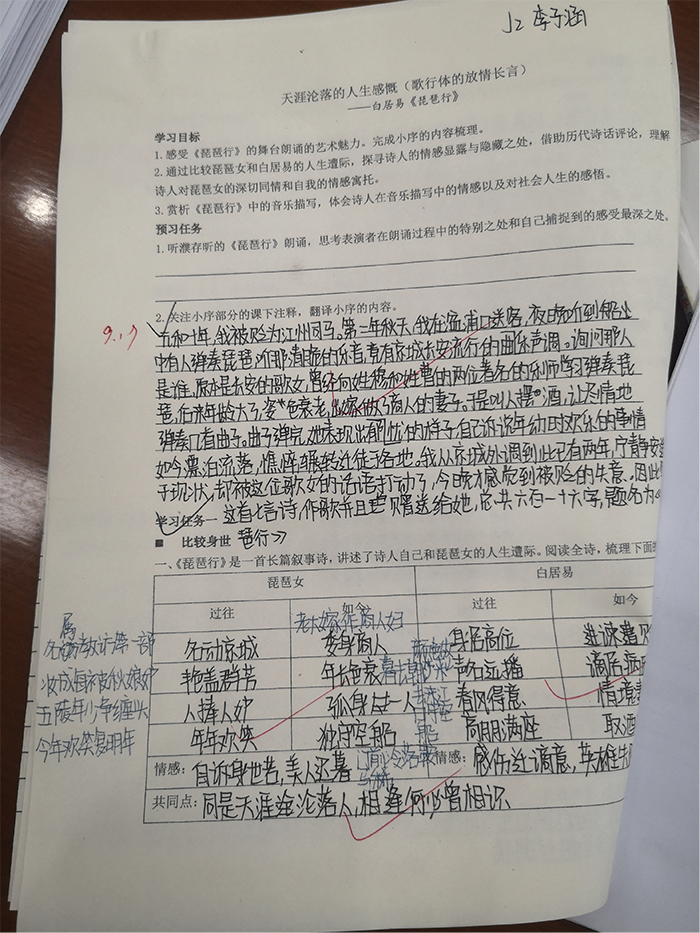 J2 李子涵
天涯沦落的人生感慨（歌行体的放情长言）
——白居易《琵琶行》
学习目标
1.感受《琵琶行》的舞台朗诵的艺术魅力。完成小序的内容梳理。
2.通过比较琵琶女和白居易的人生遭际，探寻诗人的情感显露与隐藏之处，借助历代诗话评论，理解
诗人对琵琶女的深切同情和自我的情感寓托。
3.赏析《琵琶行》中的音乐描写，体会诗人在音乐描写中的情感以及对社会人生的感悟。
预习任务
1.听濮存昕的《琵琶行》朗诵，思考表演者在朗诵过程中的特别之处和自己捕捉到的感受最深之处。
2.关注小序部分的课下注释，翻译小序的内容。
9.17
元和十年，我被贬为江州司马。第二年秋天，我在湓浦口送客，夜晚听到船上
中有人弹奏琵琶，听那清脆的乐音，竟有京城长安流行的曲乐声调。询问那人
是谁，原本是长安的歌女，曾经向姓穆和姓曹的两位著名的乐师学习弹奏琵
琶，后来年龄大了，姿色衰老，出嫁做了商人的妻子。于是叫人摆酒，让尽情地
弹奏几首曲子。曲子弹完，她表现出忧的样子，自己诉说年幼时欢乐的事情
如今漂泊流落，憔悴辗转迁徙于各地。我从京城外调到此已有两年，宁静安
于现状，却被这位歌女的话语打动了，今晚才感觉到被贬的失意。因此
学习任务一 这首七言诗，作歌并且赠送给她，总共六百一十六字，题名为
■ 比较身世 琶行》
一、《琵琶行》是一首长篇叙事诗，讲述了诗人自己和琵琶女的人生遭际。阅读全诗，梳理下面
琵琶女 白居易
过往 如今 过往 如今
老大嫁作商人妇
名属教坊第一部 名动京城 委身商人 身居高位
妆成每被秋娘妒 艳盖群芳 年长色衰 声名远播 谪居
五陵年少争缠头 人捧人妒 孤身一人 春风得意 情境
今年欢笑复明年 年年欢笑 独守空船 高朋满座 取酒
情感：自诉身世苦，美人迟暮 门前冷落 情感：感伤迁谪意，英雄失
共同点：同是天涯沦落人，相逢何必曾相识